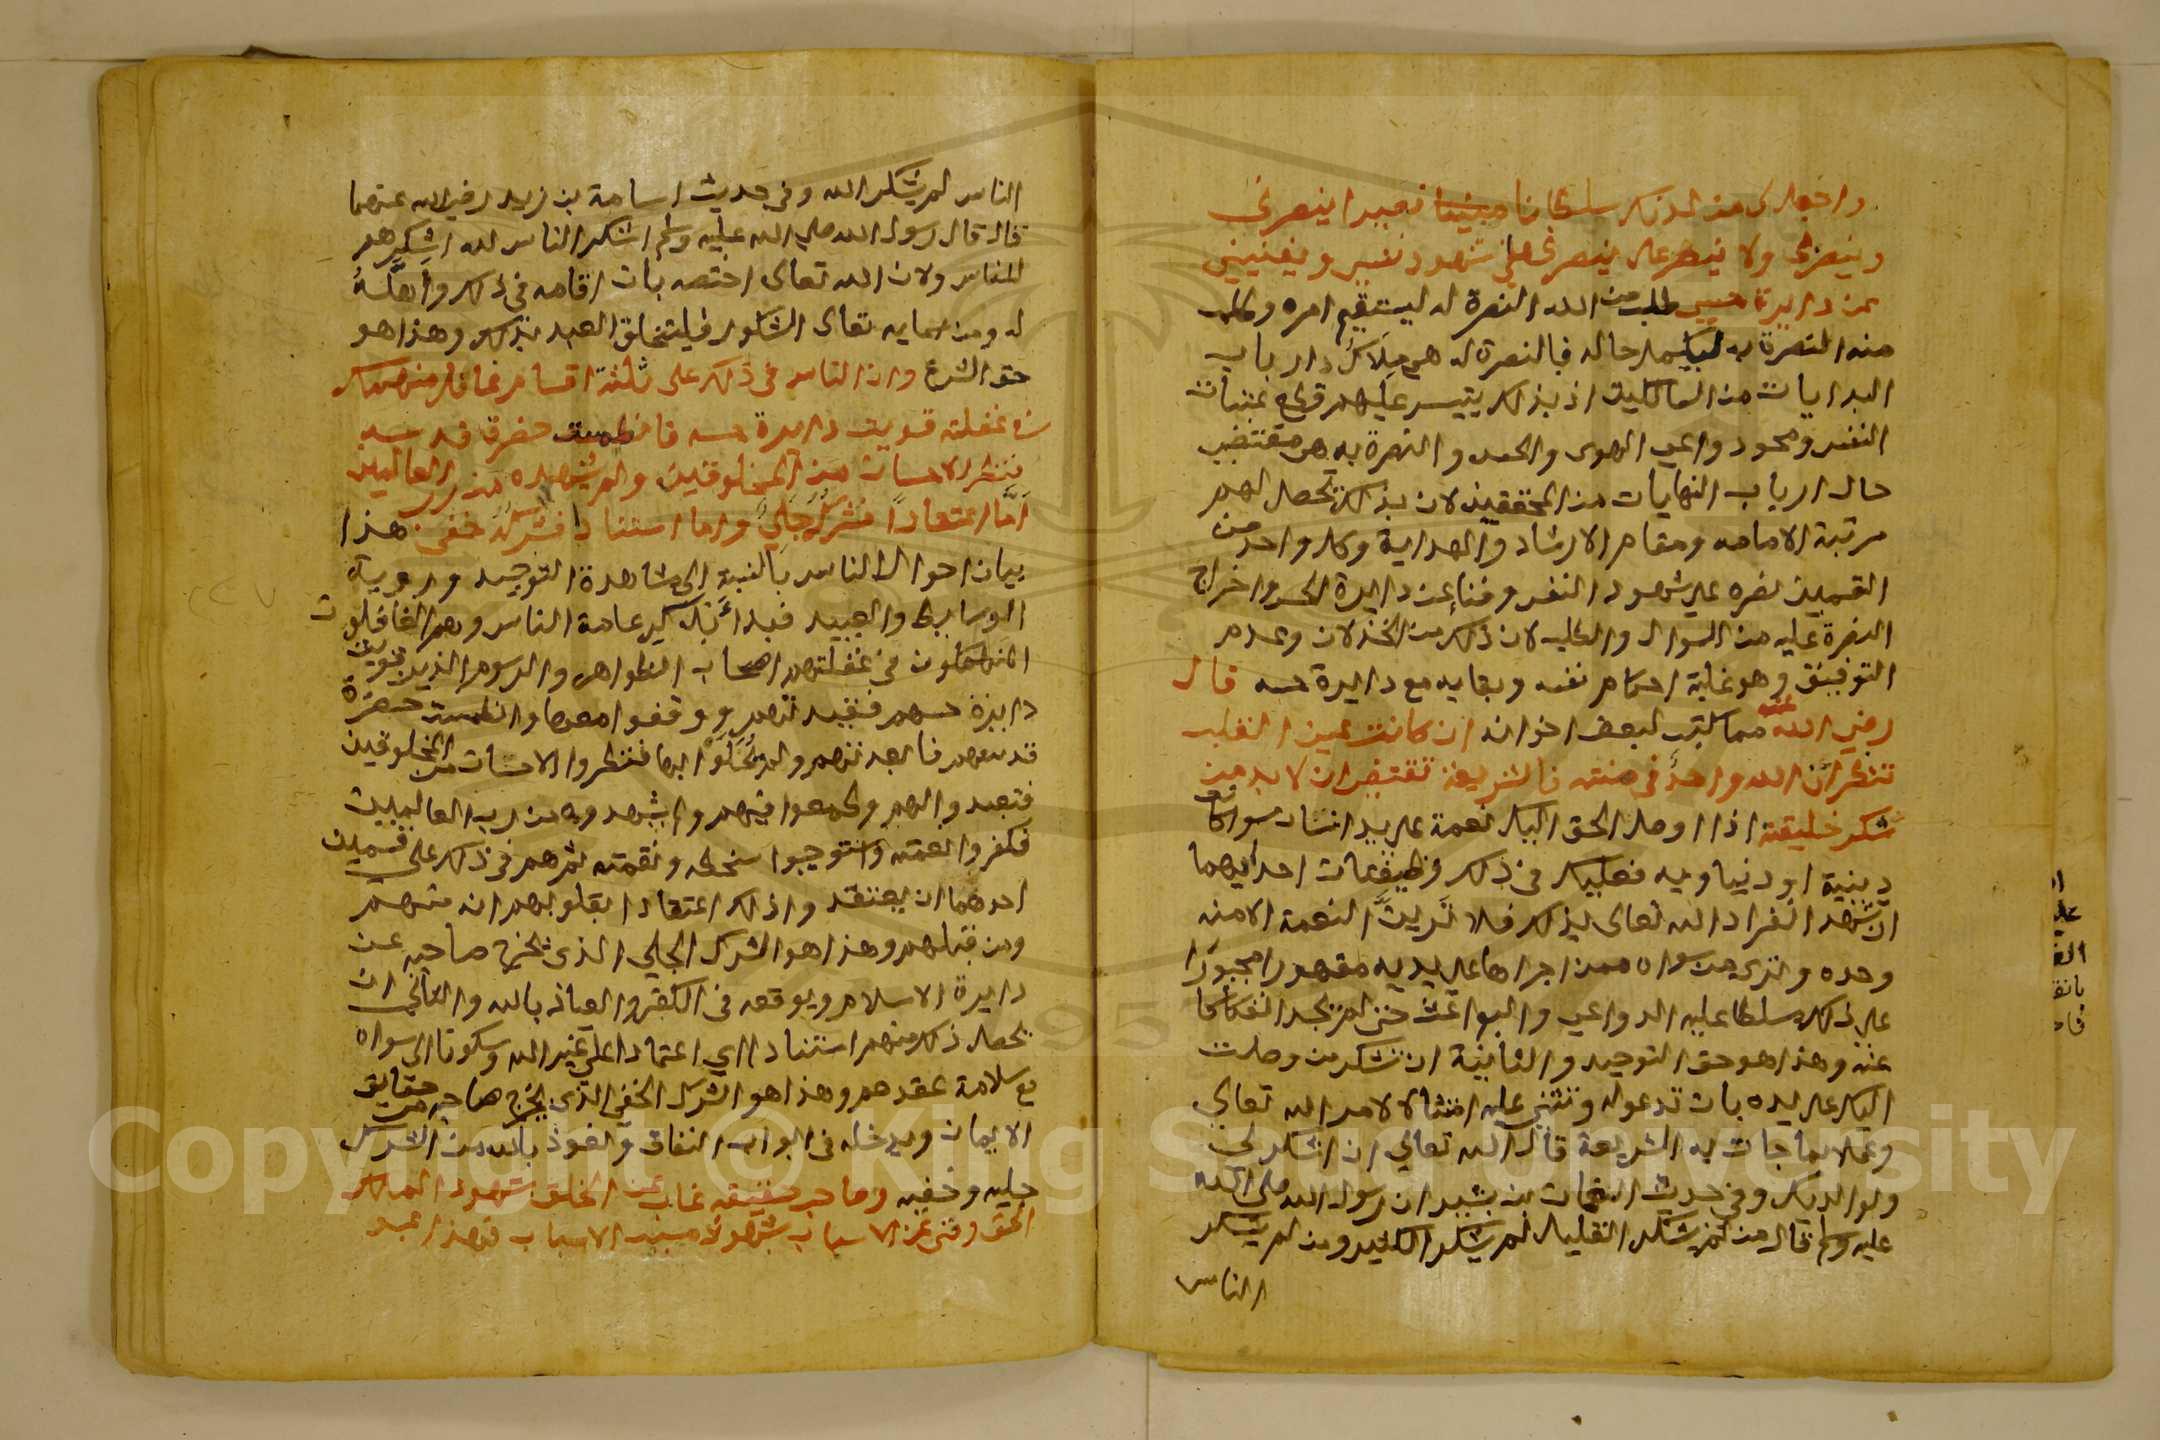 واجعل لي من لدنك سلطانا مبينا نصيرا ينصرني
وينصر بي ولا ينصر علي ينصرني على شهود نفسي ويفنيني
عن دايرة حسي طلب من الله النصرة له ليستقيم امره وطلب
منه النصرة به ليكمل حاله فالنصرة له هي ملاك ارباب
البدايات من السالكين اذ بذلك يتيسر عليهم قطع عقبات
النفس ومحو دواعي الهوى والحس والنصرة به هي مقتضى
حال ارباب النهايات من المحققين لان بذلك تحصل لهم
مرتبة الامامه ومقام الارشاد والهداية وكل واحد من
القسمين نصره على شهود النفس وفناء عن دايرة الحس واخراج
النصرة عليه من السوال والطلب لان ذلك من الخذلان وعدم
التوفيق وهو غلبة احكام نفسه وبقايه مع دايرة حسه قال
رضي الله عنه مما كتب لبعض اخوانه ان كانت عين القلب
تنظر ان الله واحد في منته فالشريعة تقتضي ان لا بد من
شكر خليقته اذا اوصل الحق اليك نعمة على يد انسان سوا كانت
دينية او دنياويه فعليك في ذلك وظيفتان احداهما
ان تشهد انفراد الله تعالى بذلك فلا ترين النعمة الا منه
وحده وترى من سواه ممن اجراها على يديه مقهورا مجبورا
على ذلك مسلطا عليه الدواعي والبواعث حتى لم يجد انفكاكا
عنه وهذا هو حق التوحيد والثانية ان تشكر من وصلت
اليك على يده بان تدعو له وتثني عليه امتثالا لامر الله تعالى
وعملا بما جات به الشريعة قال الله تعالى ان اشكر لي
ولوالديك وفي حديث النعمان بن بشير ان رسول الله صلى الله
عليه وسلم قال من لم يشكر القليل لم يشكر الكثير ومن لم يشكر
الناس
الناس لم يشكر الله وفي حديث اسامة بن زيد رضي الله عنهما
قال قال رسول الله صلى الله عليه وسلم اشكر الناس لله اشكرهم
للناس ولان الله تعالى اختصه بان اقامه في ذلك واهله
له ومن اسمايه تعالى الشكور فليتخلق العبد بذلك وهذا هو
حق الشرع وان الناس في ذلك على ثلثة اقسام غافل منهمك
في غفلته قويت دايرة حسه فانطمست حضرة قدسه
فنظر الاحسان من المخلوقين ولم يشهده من رب العالمين
اما اعتقادا فشركه جلي واما استنادا فشركه خفي هذا
بيان احوال الناس بالنسبة الى مشاهدة التوحيد وروية
الوسايط والعبيد فبدا بذكر عامة الناس وهم الغافلون
المنهمكون في غفلتهم اصحاب الظواهر والرسوم الذين قويت
دايرة حسهم فتقيدتهم ووقفوا معها وانطمست حضرة
قدسهم فابعدتهم ولم يدخلوا اليها فنظروا الاحسان من المخلوقين
فتعبدوا لهم وطمعوا فيهم ولم يشهدوه من رب العالمين
فكفروا نعمته واستوجبوا سخطه ونقمته ثم هم في ذلك على قسمين
احدهما ان يعتقدوا ذلك اعتقادا بقلوبهم انه منهم
ومن قبلهم وهذا هو الشرك الجلي الذي يخرج صاحبه عن
دايرة الاسلام ويوقعه في الكفر والعياذ بالله والثاني ان
يحصل ذلك منهم استنادا اي اعتمادا على غير الله وسكونا الى سواه
مع سلامة عقدهم وهذا هو الشرك الخفي الذي يخرج صاحبه من حقايق
الايمان ويدخله في ابواب النفاق ونعوذ بالله من الشرك
جليه وخفيه وصاحب حقيقه غاب عن الخلق بشهود الملك
الحق وفني عن الاسباب بشهود مسبب الاسباب فهذا عبد